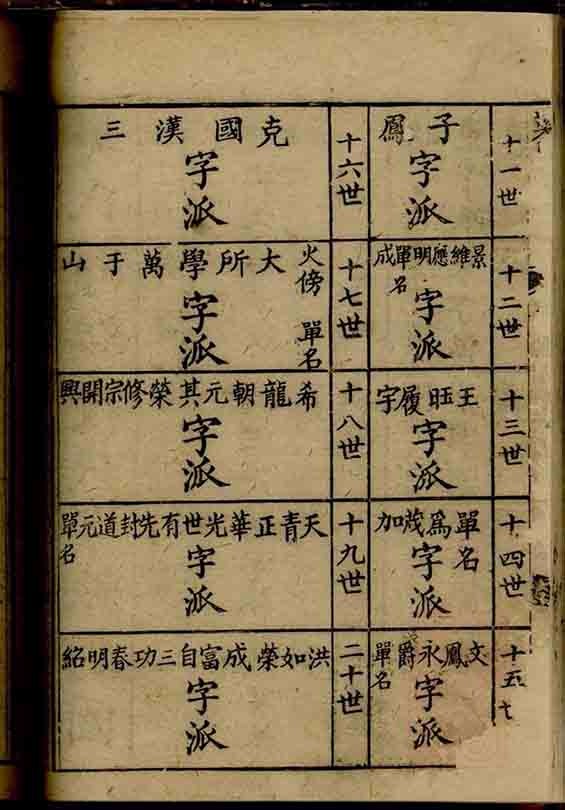 十一世
子鳳
字派
十二世
景維應明單名成
字派
十三世
王旺履宇
字派
十四世
單名為茂加
字派
十五
文鳳永爵單名
字派
十六世
克國漢三
字派
十七世
火傍單名
大所學萬于山
字派
十八世
希龍朝元其榮修宗開興
字派
十九世
天青正華光世有先封道元單名
字派
二十世
洪如榮成富自三功春明紹
字派